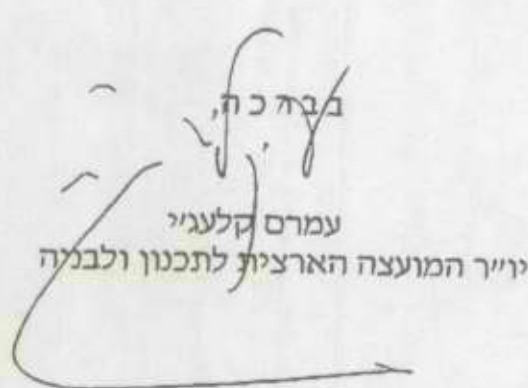 בברכה,
עמרם קלעג'י
יו"ר המועצה הארצית לתכנון ולבניה